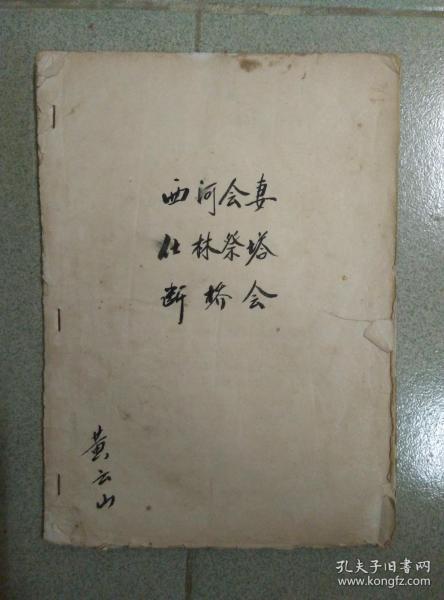 西河会妻
仕林祭塔
断桥会
黄云山
孔夫子旧书网
www.kongfz.com